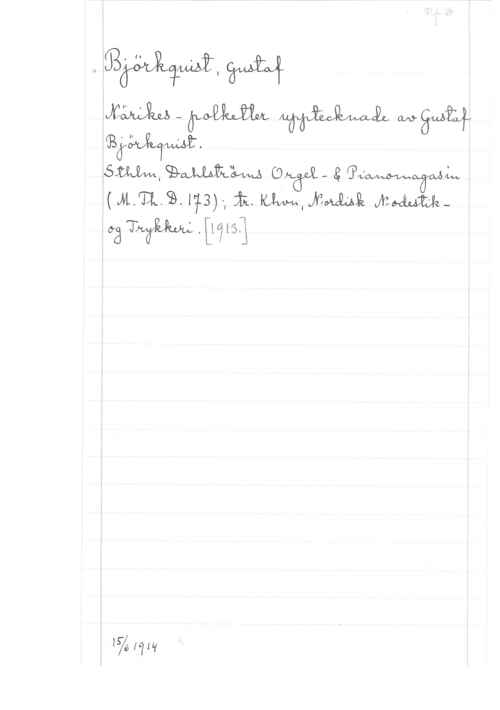 Björkquist, Gustaf
Närikes-polketter upptecknade av Gustaf
Björkquist.
Sthlm, Dahlströms Orgel- & Pianomagasin
(M. Th. D. 173); tr. Khvn, Nordisk Nodestik-
og Trykkeri. [1913.]
15/6 1914